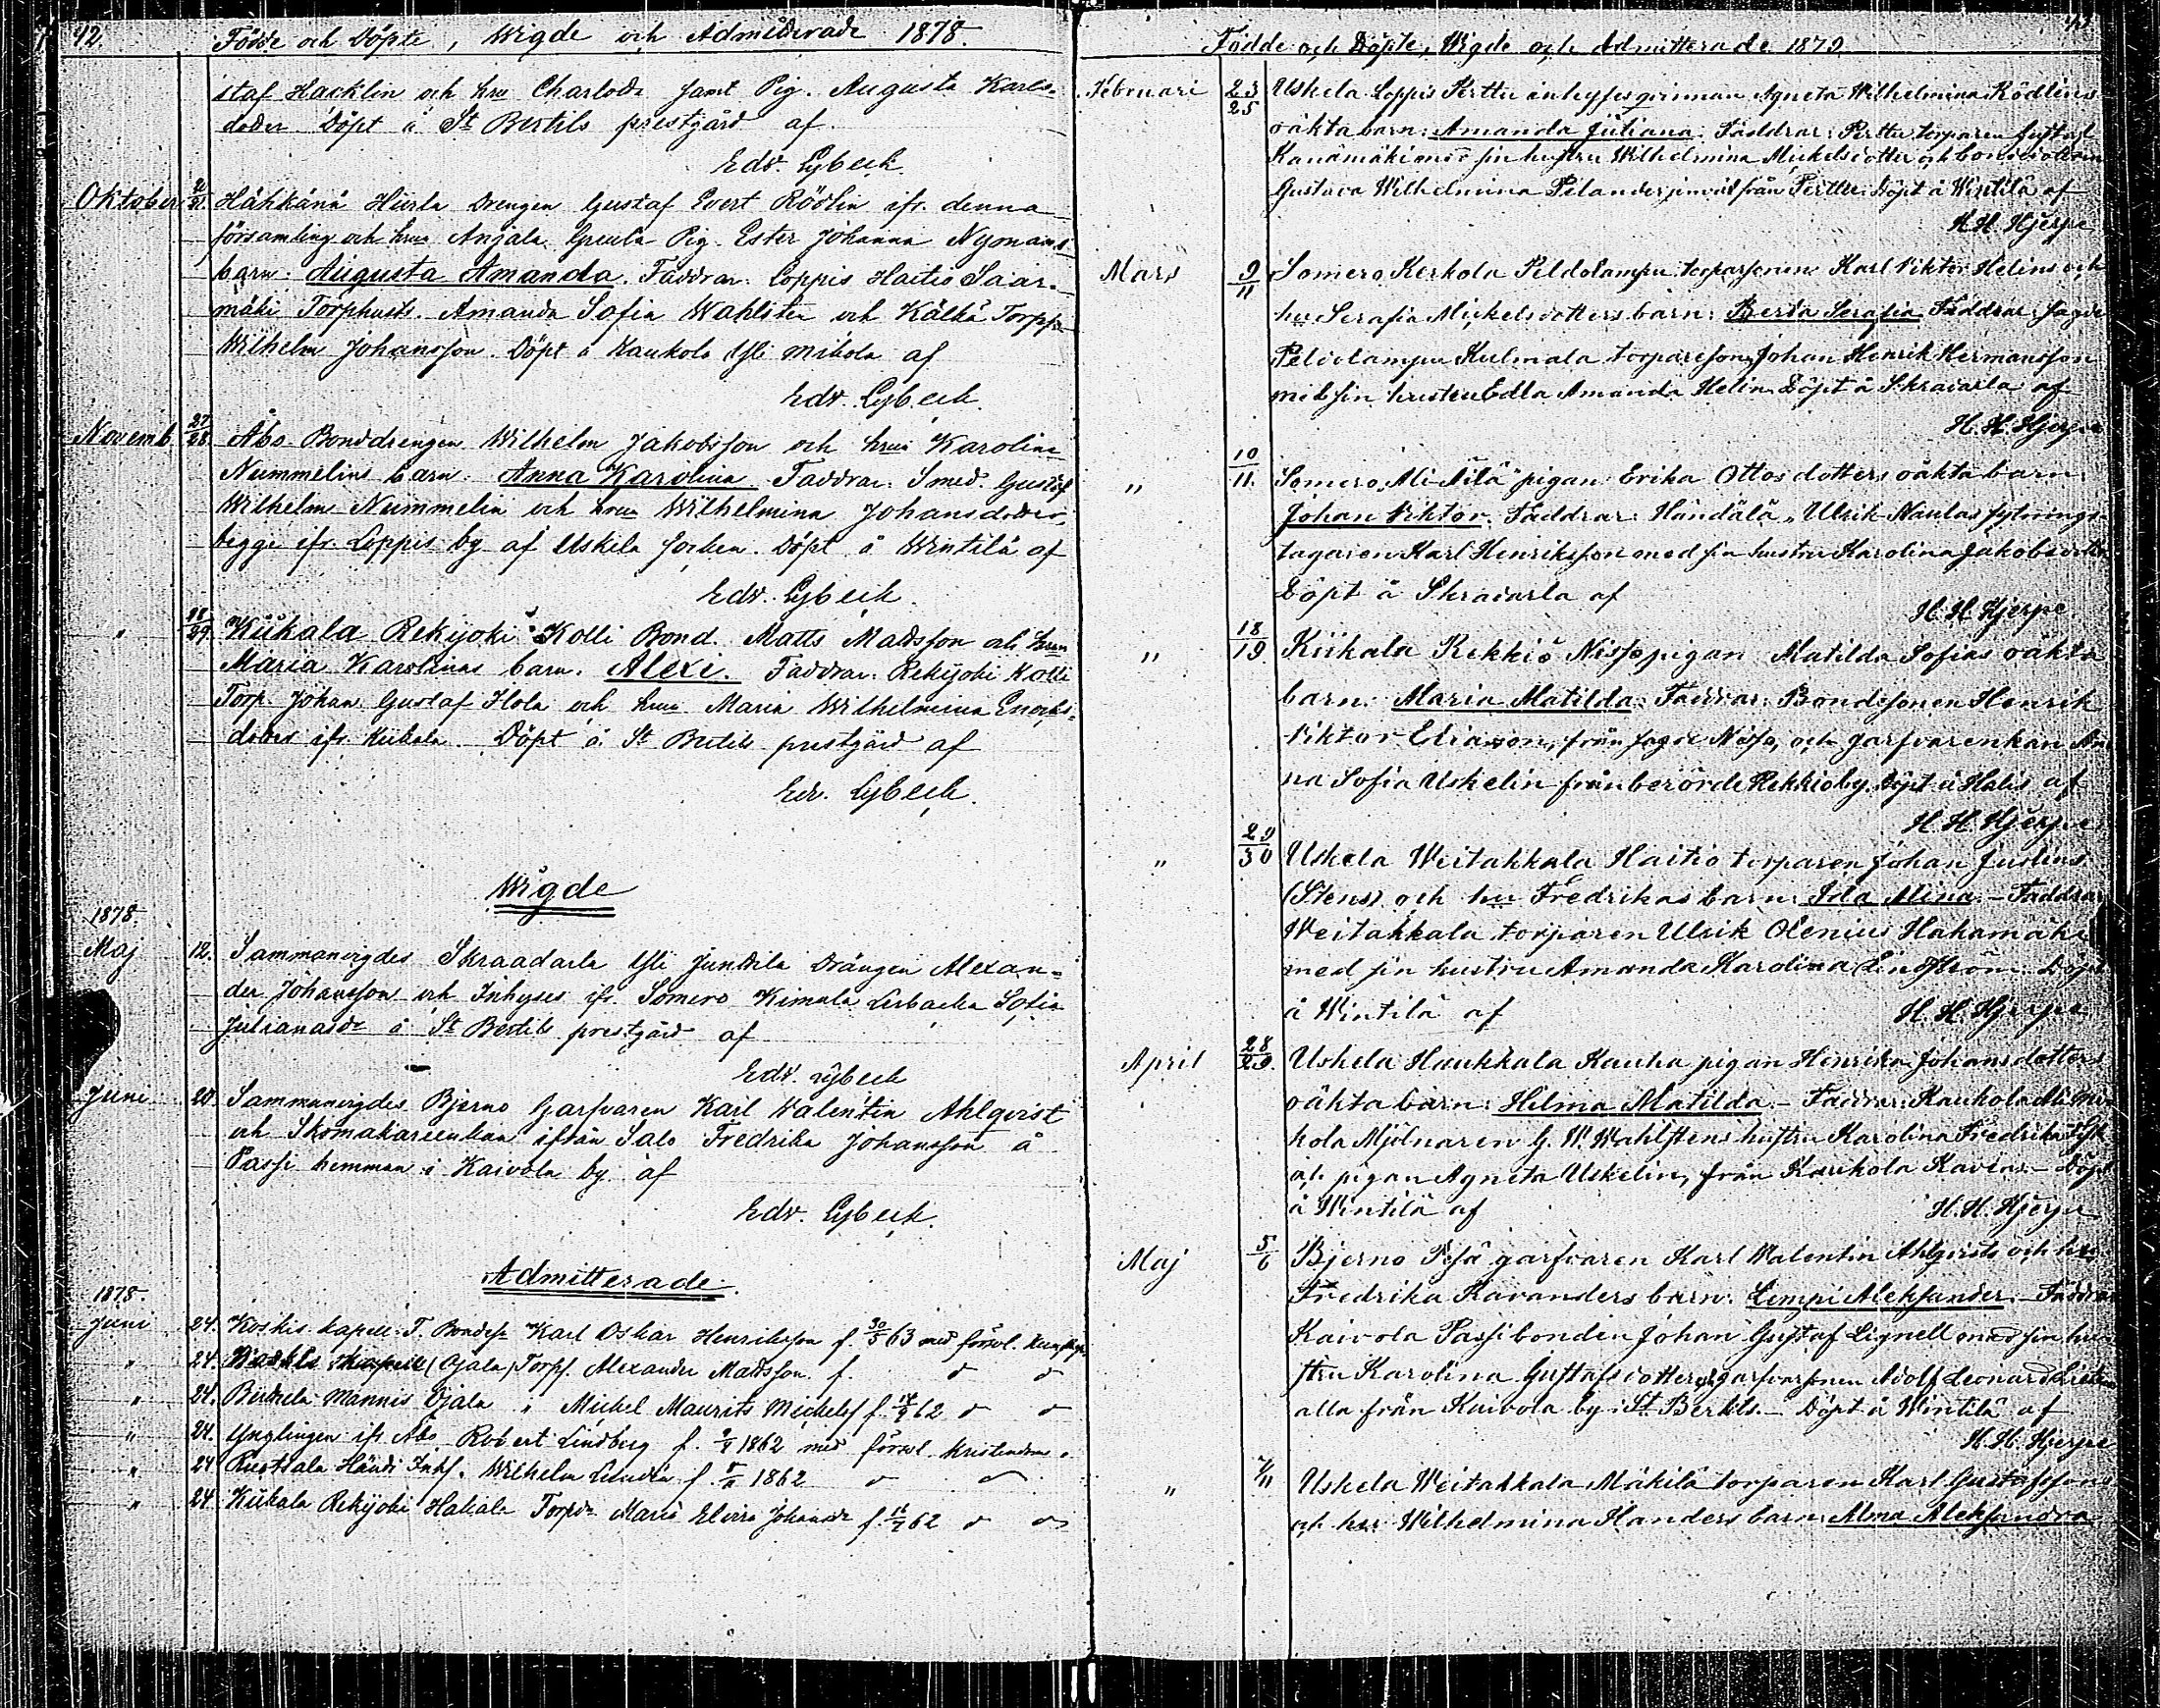 42.
Födde och Döpte, Wigde och Admitterade 1878.
staf Hacklin och hru Charlotta samt Pig. Augusta Karls-
doter Döpt å St Bertils prestgård af
Edv. Lybeck.
Oktober 20/21. Hähkänä Hiirla Drengen Gustaf Evert Rödlin ifr. denna
församling och hru Anjala Greula Pig. Ester Johanna Nymans
barn. Augusta Amanda. Faddrar: Loppis Haitio Saar-
mäki Torphustr. Amanda Sofia Wahlsten och Kälkä Torps.
Wilhelm Johansson. Döpt å Kaukola Yli Mikola af
Edv. Lybeck.
Novemb. 27/28. Åbo Bonddrengen Wilhelm Jakobsson och hrus Karolina
Nummelins barn. Anna Karolina. Faddrar. Smed. Gustaf
Wilhelm Nummelin och hrun Wilhelmina Johansdoter,
begge ifr. Loppis by af Uskela socken. Döpt å Wintilä af
Edv. Lybeck.
" 28/29. Kiikala Rekijoki Kolli Bond. Matts Matsson och hrun
Maria Karolinas barn. Alexi. Faddrar. Rekijoki Kolli
Torp. Johan Gustaf Hola och hrun Maria Wilhelmina Enoks-
doter ifr. Kiikala. Döpt å St Bertils prestgård af
Edv. Lybeck.
Wigde
1878.
Maj 12. Sammanvigdes Skraadarla Yli Junttila Drängen Alexan-
der Johansson och Inhyses ifr. Somero Kimala Lisbacka Sofia
Julianasdr å St Bertils prestgård af
Edv. Lybeck
Juni 20. Sammanvigdes Bjerno Garfvaren Karl Walentin Ahlqvist
och Skomakareenkan ifrån Salo Fredrika Johansson å
Passi hemman i Kaivola by af
Edv. Lybeck.
Admitterade.
1878.
Juni 24. Koskis kapell T. Bondes. Karl Oskar Henriksson f. 30/5 63 med försvl. kunskp.
" 24. Ojala, Torps. Alexander Matsson f.
" 24. Mannis Ojala " Michel Maurits Michelss f. 62
" 24. Ynglingen ifr Åbo Robert Lindberg f. 1862 med försvl kristendoms.
" 24 Händi Inhs. Wilhelm f. 1862
" 24. Kiikala Rekijoki Hakala Torpdr Maria Elvira Johansdr f. 62
Födde och Döpte, Wigde och Admitterade 1879.
Februari 23/25 Uskela Loppis Perttu inhyses qvinnan Agneta Wilhelmina Rödlins
oäkta barn: Amanda Juliana. Faddrar: Perttu torparen Gustaf
Kanämäki med sin hustru Wilhelmina Mickelsdotter och bondedottern
Gustava Wilhelmina Pelander, jemväl från Perttu. Döpt å Wintilä af
H. H. Hjerpe
Mars 9/11 Somero Kerkola Peldolampu torparsonen Karl Viktor Helins och
hu Serafia Mickelsdotters barn: Berta Serafia. Faddrar: sagde
Peldolampu Kulmala torpareson Johan Henrik Hermansson
med sin hustru Edla Amanda Helin. Döpt å Skraadarla af
H. H. Hjerpe
" 10/11. Somero Ali-Äilä pigan Erika Ottosdotters oäkta barn
Johan Viktor. Faddrar: Händälä, Ulrik Naulas sytnings-
tagaren Karl Henriksson med sin hustru Karolina Jakobsdotter
Döpt å Skraadarla af
H. H. Hjerpe
" 18/19. Kiikala Rekkiö Nisse pigan Matilda Sofias oäkta
barn: Maria Matilda. Faddrar: Bondesonen Henrik
Viktor Eliasson, från sagde Nisse, och garfvarenkan An-
na Sofia Uskelin från berörde Rekkio by. Döpt å Halis af
H. H. Hjerpe
" 29/30 Uskela Weitakkala Haitio torparen Johan Juslins
(Stens) och hu Fredrikas barn: Ida Mina. - Faddrar
Weitakkala torparen Ulrik Olenius Hakamäki
med sin hustru Amanda Karolina Lindström. Döpt
å Wintilä af
H. H. Hjerpe
April 28/29. Uskela Haukkala Kauha pigan Henrika Johansdotters
oäkta barn: Hilma Matilda. - Faddrar: Kaukola Ali Mi-
kola Mjölnaren G. W. Wahlstens hustru Karolina Fredrika
och pigan Agneta Uskelin, från Kaukola Kavéns. - Döpt
å Wintilä af
H. H. Hjerpe
Maj 5/6 Bjerno Pesä garfvaren Karl Walentin Ahlqvists och hu
Fredrika Kavanders barn: Lempi Aleksander. - Faddrar
Kaivola Passi bonden Johan Gustaf Lignell med sin hu-
stru Karolina Gustafsdotter och garfvarsonen Adolf Leonard
alla från Kaivola by i St Bertils. - Döpt å Wintilä af
H. H. Hjerpe
" 7/11 Uskela Weitakkala Mäkilä torparen Karl Gustafssons
och hu Wilhelmina Handers barn: Alma Aleksandra